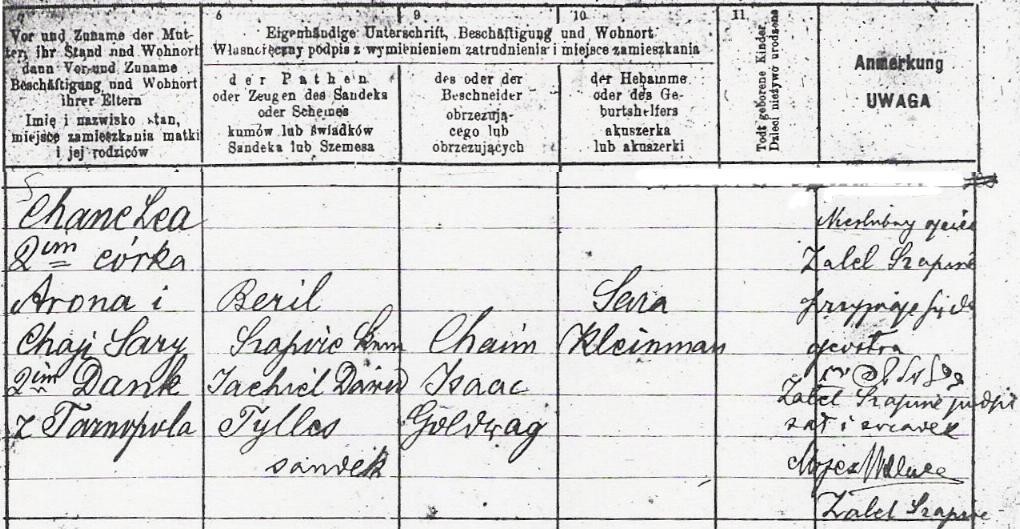 6
9
10
11
Vor und Zuname der Mut-
ter, ihr Stand und Wohnort
dann Vor und Zuname
Beschäftigung und Wohnort
ihrer Eltern
Imię i nazwisko stan,
miejsce zamieszkania matki
i jej rodziców
Eigenhändige Unterschrift, Beschäftigung und Wohnort
Własnoięczny podpis z wymienieniem zatrudnienia i miejsce zamieszkania
der Pathen
oder Zeugen des Sandeks
oder Schemes
kumów lub świadków
Sandeka lub Szemesa
des oder der
Beschneider
obrzezują-
cego lub
obrzezujących
der Hebamme
oder des Ge-
burtshelfers
akuszerka
lub akuszerki
Todt geborene Kinder
Dzieci nieżywo urodzone
Anmerkung
UWAGA
Chane Lea
2im córka
Arona i
Chaji Sary
2im Dank
z Tarnopola
Beril
Szapiric kum
Jachiel Dawid
Tylles
sandek
Chaim
Isaac
Goldwag
Sara
Kleinman
Nieślubny ojciec
Zalel Szapiric
przyznaje się do
ojcostwa
Zalel Szapiric podpi
sał i świadek
Mojzes
Zalel Szapiric